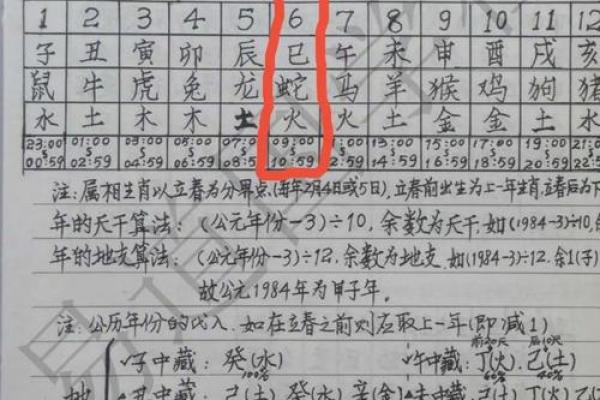 1 2 3 4 5 6 7 8 9 10 11 12
子 丑 寅 卯 辰 巳 午 未 申 酉 戌 亥
鼠 牛 虎 兔 龙 蛇 马 羊 猴 鸡 狗 猪
水 土 木 木 土 火 火 土 金 金 土 水
23:00 01:00 03:00 05:00 07:0 09:00 11:00 13:00 15:00 17:00 19:00 21:0
00:59 02:59 04:59 06:59 08:5 10:59 12:59 14:59 16:59 18:59 20:59 22:5
注:属相生肖以立春为分界点,(每年2月4日或5日),立春前出生为上一年生肖,立春后为下
年的天干算法:(公元年份-3)÷10,余数为天干,如(1984-3)÷10,余
年的地支算法:(公元年份-3)÷12,余数为地支.如(1984-3)÷12.余1(子)
故公元1984年为甲子年。
注:公历年份的代入.如在立春之前则应取上一年(即减1)
前20天 后10天
子中藏:癸(水) 午中藏:丁(火).己(土)
100%
丑中藏:己(土) 癸(水) 辛(金) 未中藏:己(土) 丁(火)
易道国学